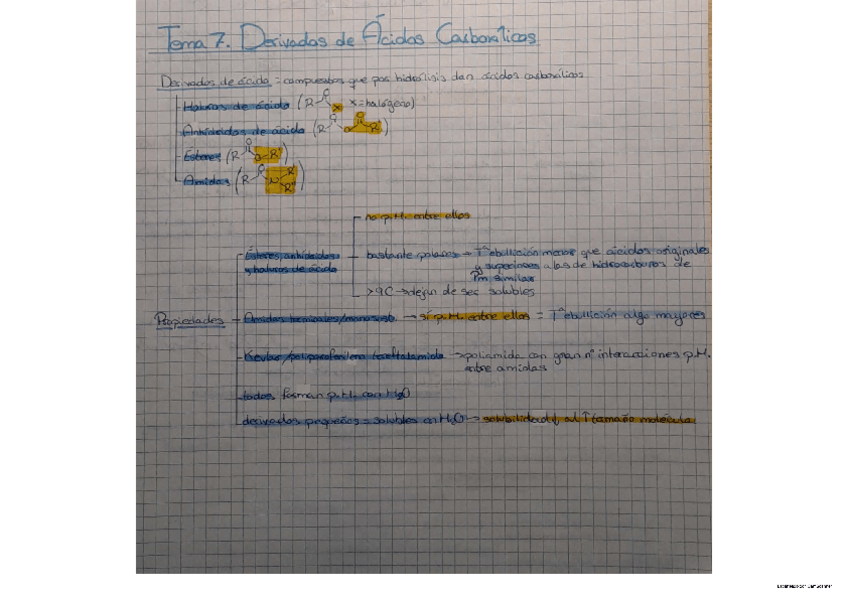 Tema 7. Derivados de Ácidos Carboxílicos
Derivados de ácido: compuestos que por hidrólisis dan ácidos carboxílicos
Haluros de ácido (R O X X=halógeno)
Anhídridos de ácido (R O O O R')
Ésteres (R O O R')
Amidas (R O N R' R'')
no p.H. entre ellos
Ésteres, anhídridos y haluros de ácido
bastante polares → Tª ebullición menor que ácidos originales
y superiores a las de hidrocarburos de
Pm similar
>4C → dejan de ser solubles
Propiedades
Amidas → sí p.H. entre ellos = Tª ebullición algo mayores
Kevlar / poliparafenileno tereftalamida → poliamida con gran nº interacciones p.H.
entre amidas
todos forman p.H. con H₂O
derivados pequeños = solubles en H₂O → solubilidad ↓ al ↑ tamaño molécula